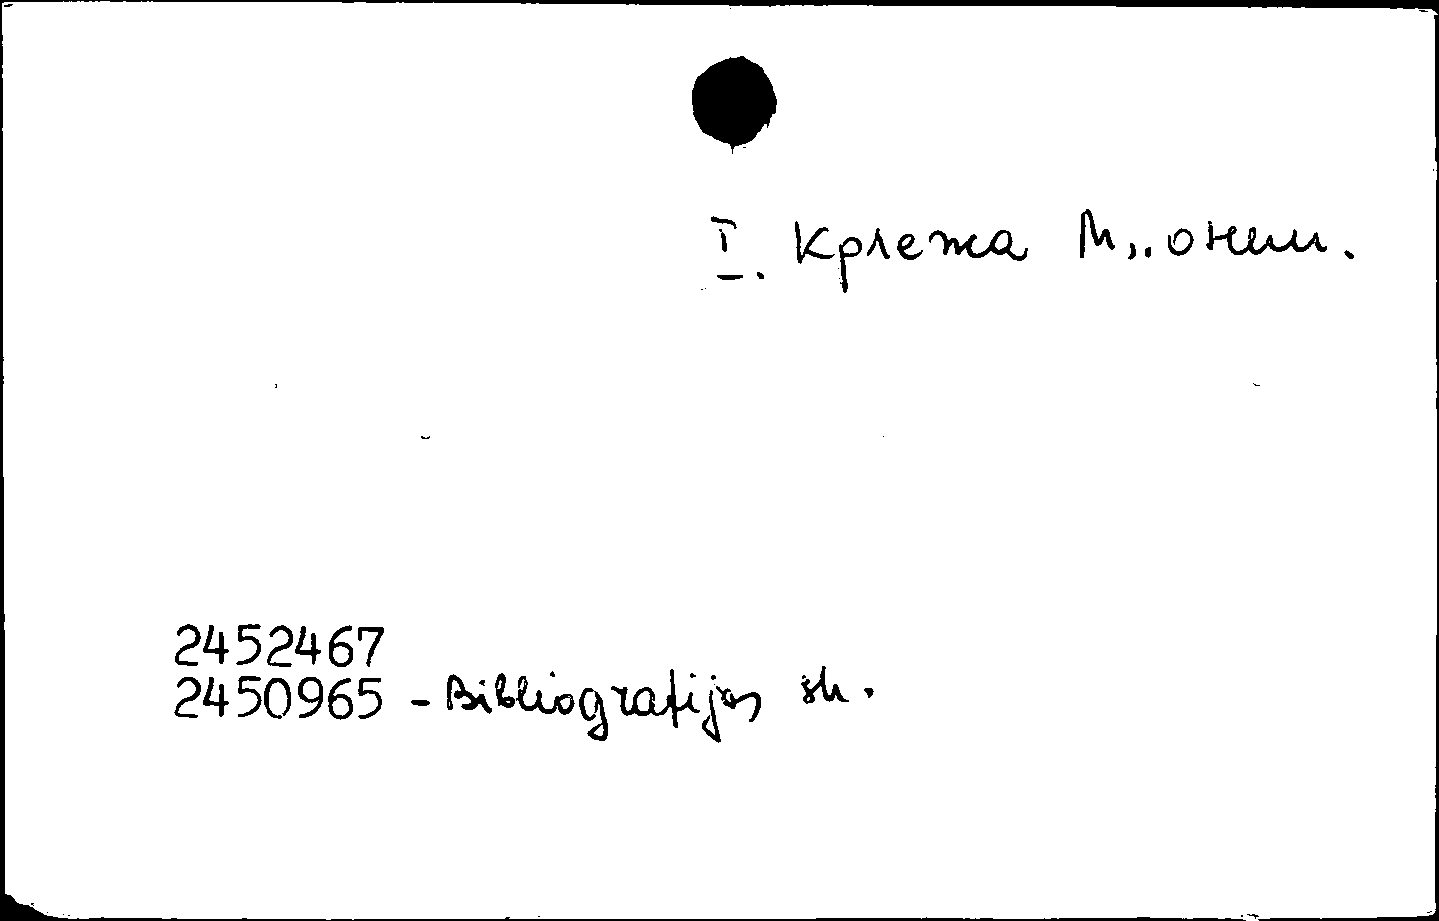 I. Крлежа М., о нем.
2452467
2450965 - Bibliografijas sk.